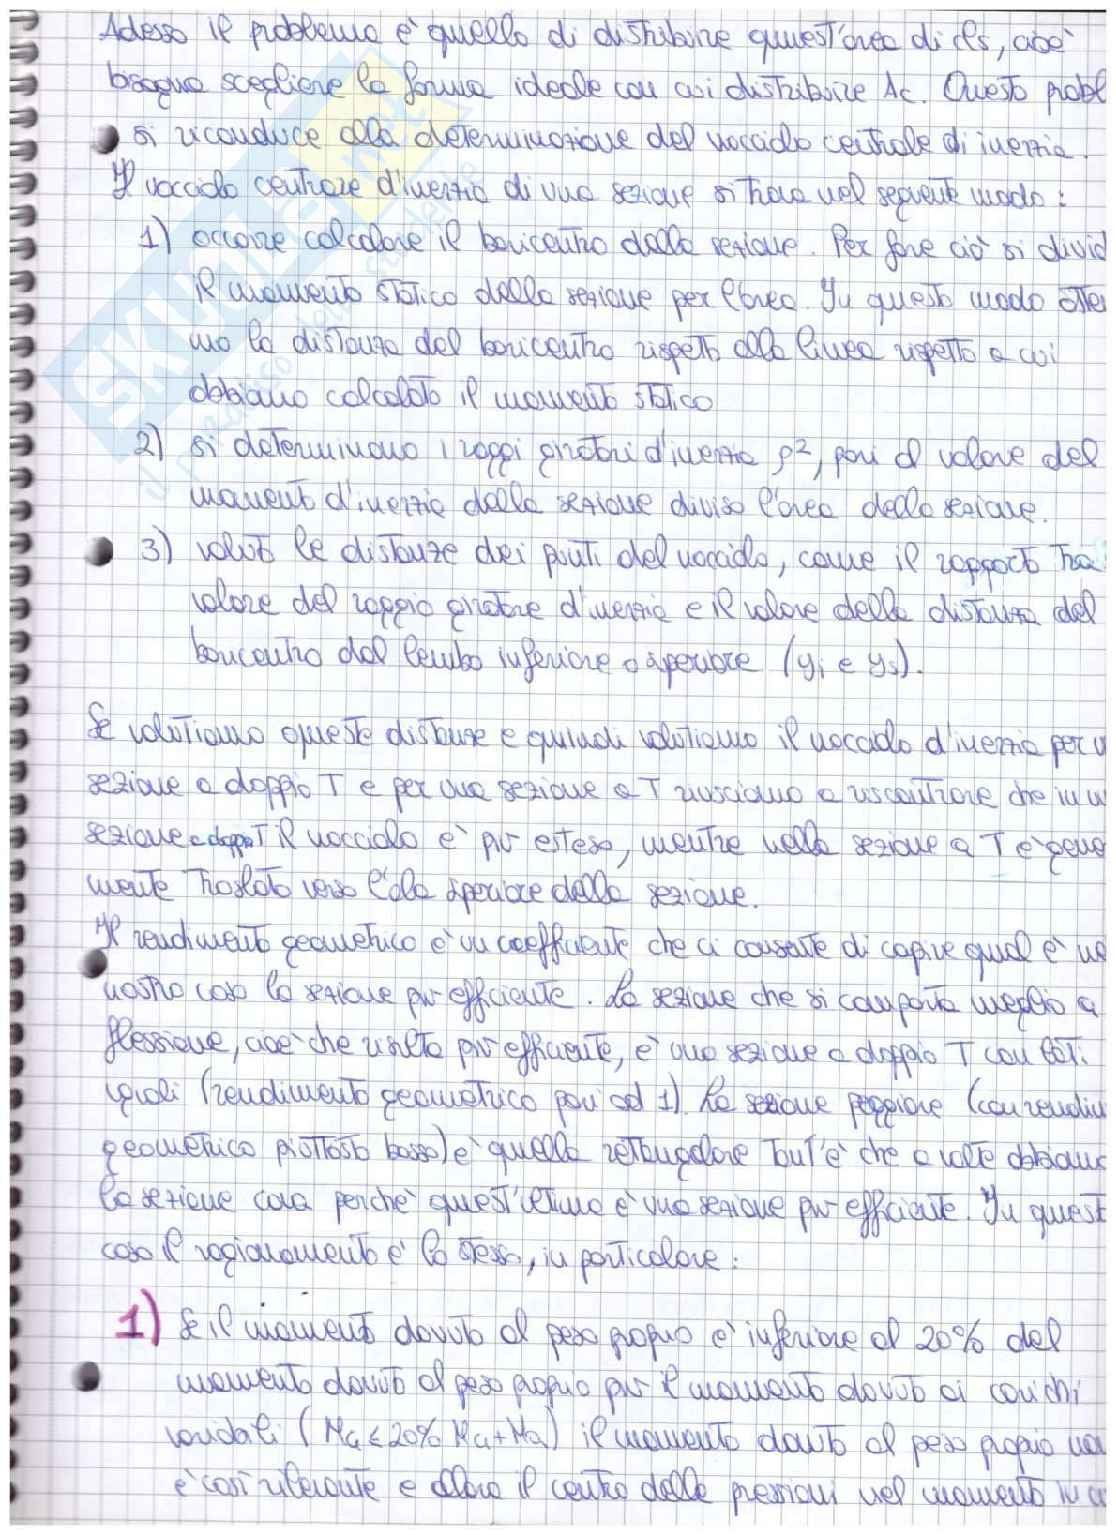 Adesso il problema è quello di distribuire quest'area di cls, cioè
bisogna scegliere la forma ideale con cui distribuire Ac. Questo probl
si riconduce alla determinazione del nocciolo centrale di inerzia.
Il nocciolo centrale d'inerzia di una sezione si trova nel seguente modo:
1) occorre calcolare il baricentro della sezione. Per fare ciò si divid
il momento statico della sezione per l'area. In questo modo otte
mo la distanza del baricentro rispetto alla linea rispetto a cui
abbiamo calcolato il momento statico
2) si determinano i raggi giratori d'inerzia ρ², pari al valore del
momento d'inerzia della sezione diviso l'area della sezione.
3) valuto le distanze dei punti del nocciolo, come il rapporto tra
valore del raggio giratore d'inerzia e il valore della distanza del
baricentro dal lembo inferiore o superiore (yi e ys).
Se valutiamo queste distanze e quindi valutiamo il nocciolo d'inerzia per u
sezione a doppio T e per una sezione a T riusciamo a riscontrare che in u
sezione a doppio T il nocciolo è più esteso, mentre nella sezione a T è gene
mente traslato verso l'ala superiore della sezione.
Il rendimento geometrico è un coefficiente che ci consente di capire qual è ne
nostro caso la sezione più efficiente. La sezione che si comporta meglio a
flessione, cioè che risulta più efficiente, è una sezione a doppio T con
uguali (rendimento geometrico pari ad 1). La sezione peggiore (con rendim
geometrico piuttosto basso) è quella rettangolare tant'è che a volte abbiamo
la sezione cava perchè quest'ultima è una sezione più efficiente. In quest
caso il ragionamento è lo stesso, in particolare:
1) Se il momento dovuto al peso proprio è inferiore al 20% del
momento dovuto al peso proprio più il momento dovuto ai carichi
variabili (MG < 20% MG + MQ) il momento dovuto al peso proprio non
è così rilevante e allora il centro delle pressioni nel momento in c